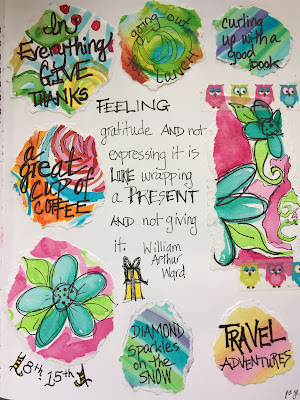 In
Everything
GIVE
THANKS
going out
to
Lunch
curling
up with a
good
book
FEELING
gratitude AND not
expressing it is
LIKE wrapping
a PRESENT
AND not giving
it. William
Arthur
Ward
a
great
cup of
COFFEE
DIAMOND
sparkles
on the
SNOW
TRAVEL
ADVENTURES
18th, 15th